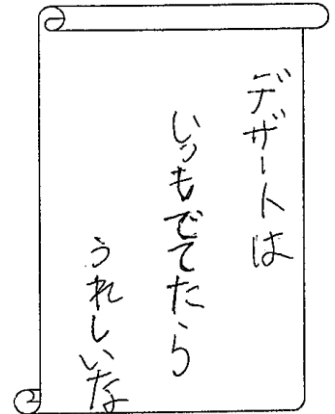 デザートは
いつもでてたら
うれしいな